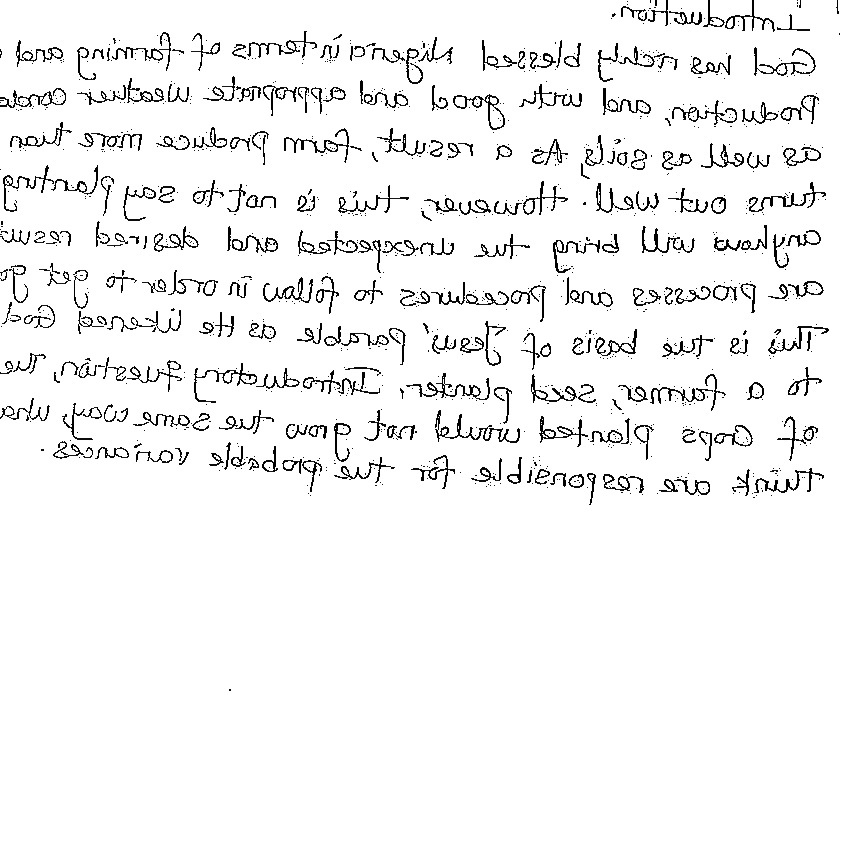 Introduction.
God has richly blessed Nigeria in terms of farming and
Production, and with good and appropriate weather
as well as soils, As a result, farm produce more than
turns out well. However, this is not to say planting
anyhow will bring the unexpected and desired
are processes and procedures to follow in order to get
This is the basis of Jesus' parable as He likened God
to a farmer, seed planter. Introductory question, The
of crops planted would not grow the same way,
think are responsible for the probable variances.